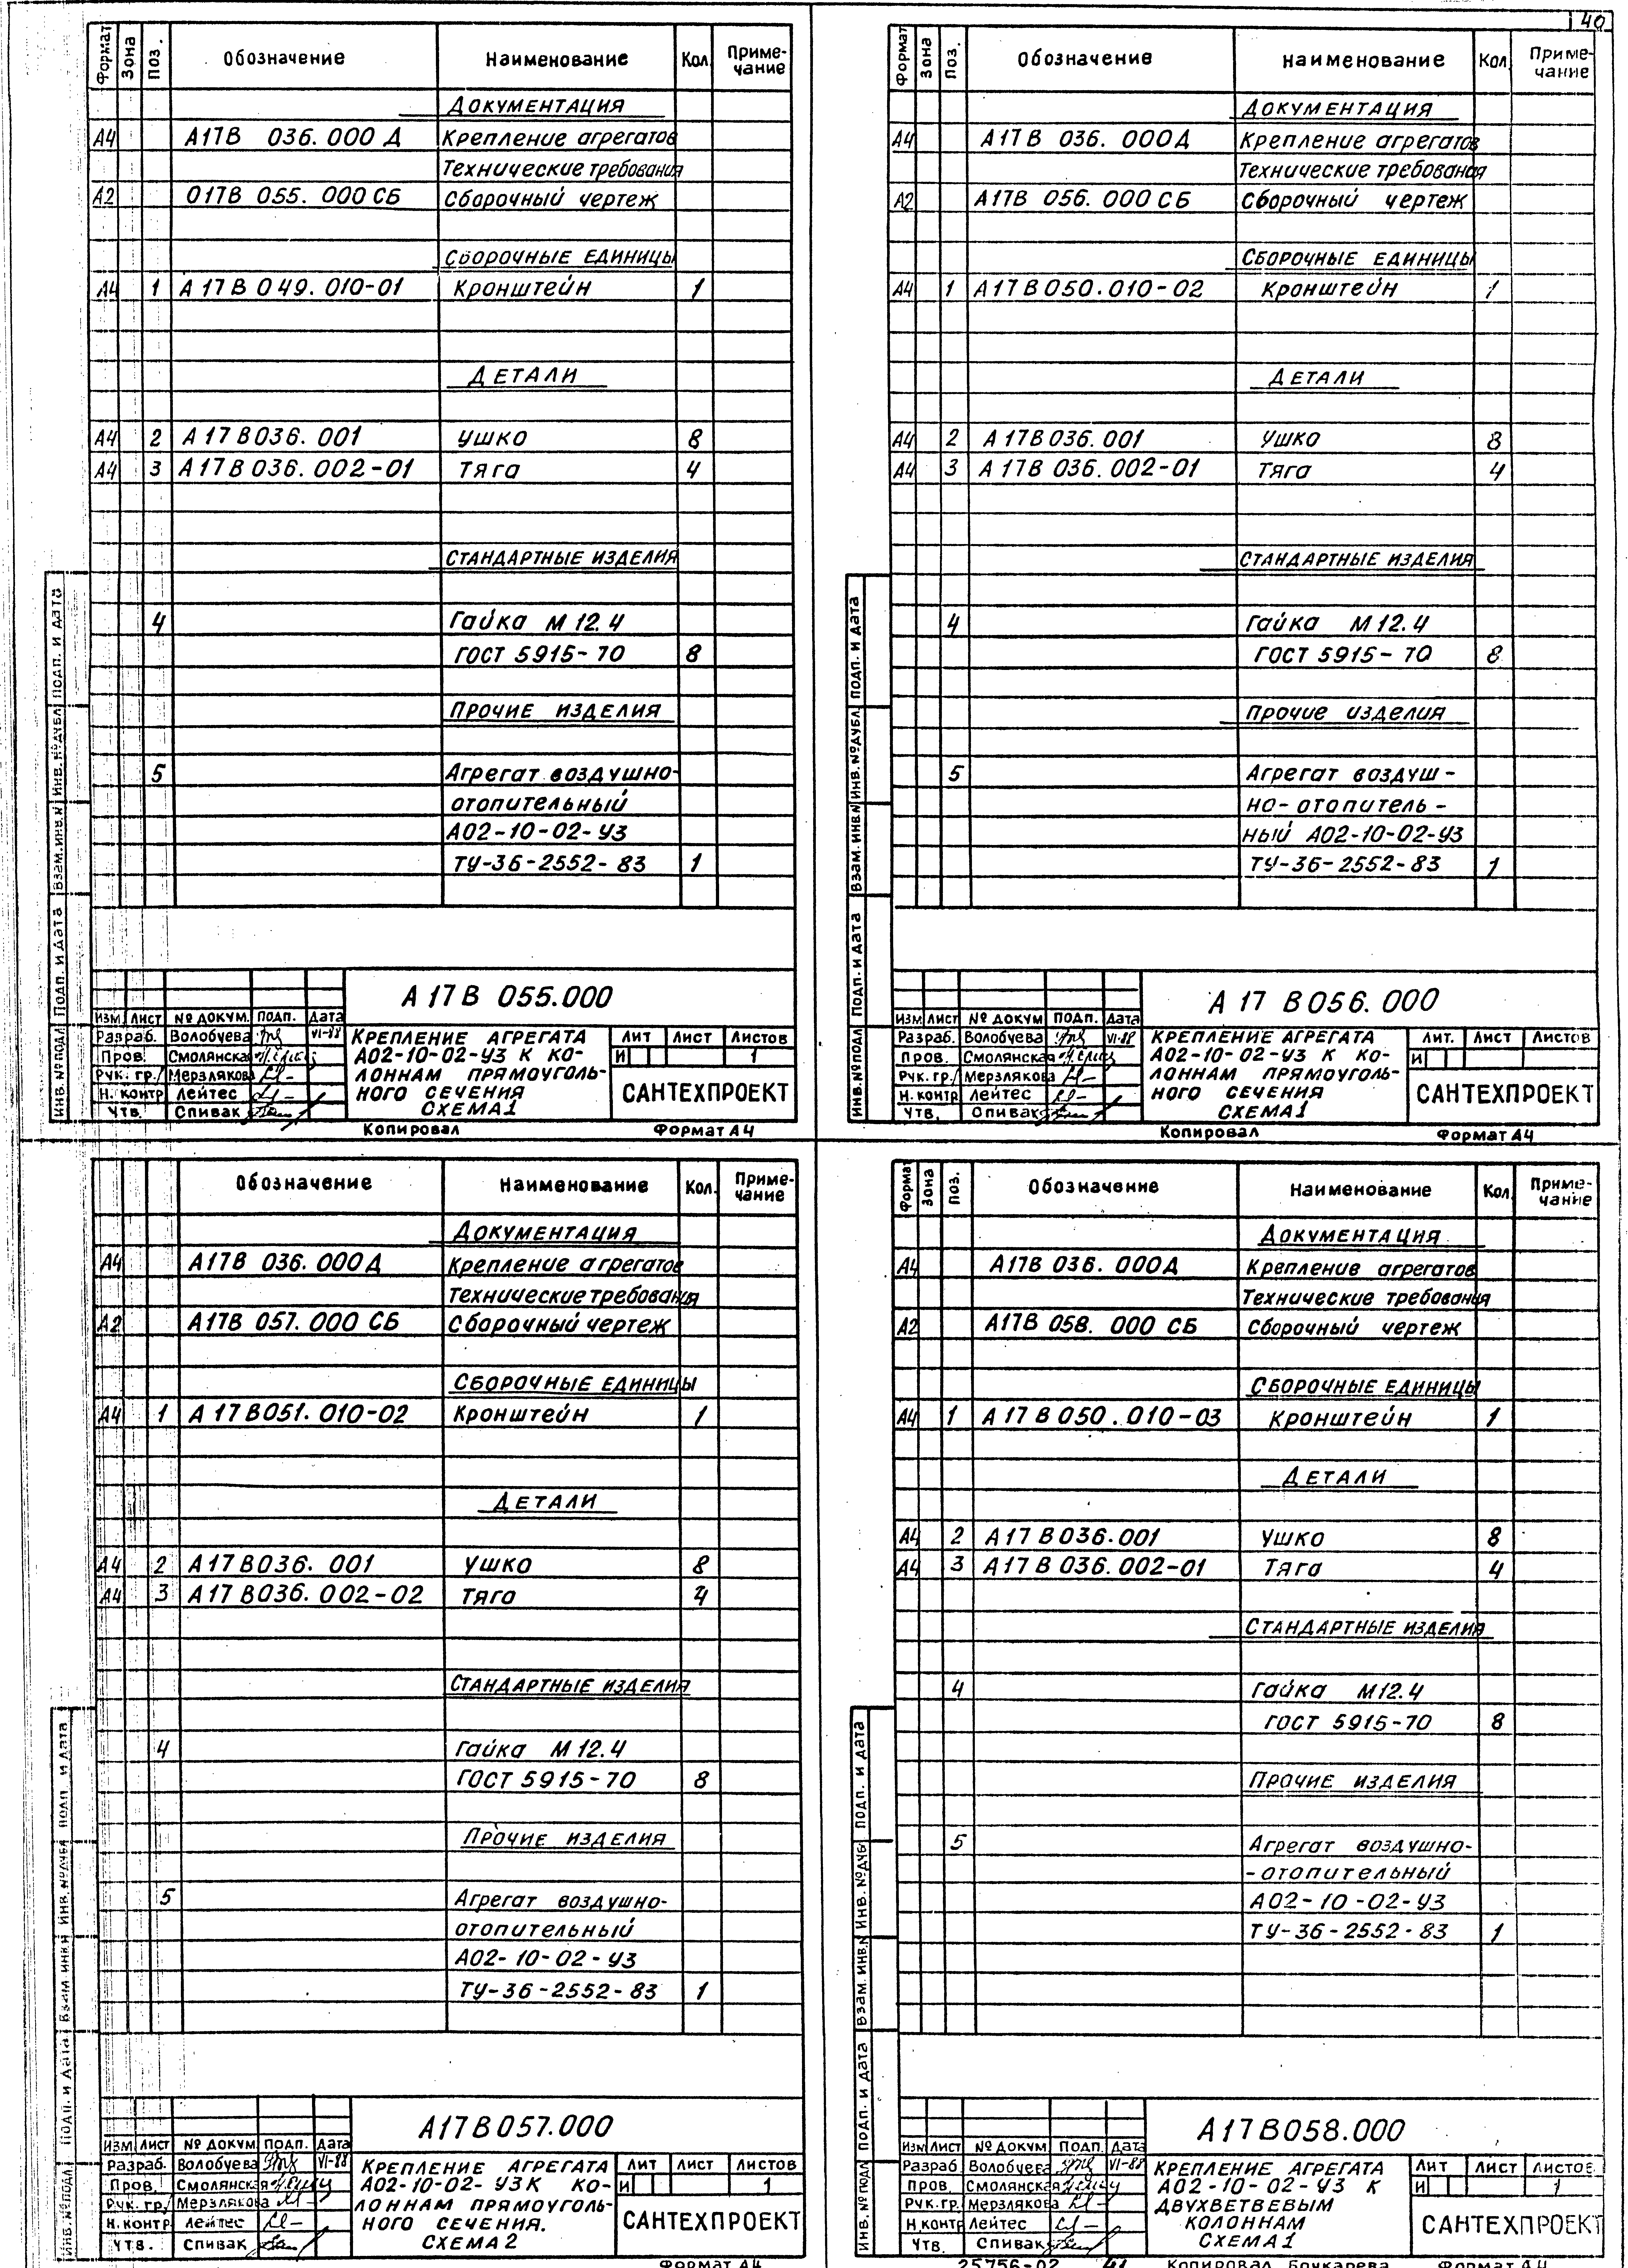 40
Формат Зона Поз. Обозначение Наименование Кол. Приме-
чание
ДОКУМЕНТАЦИЯ
А4 А17В 036.000 Д Крепление агрегатов
Технические требования
А2 017В 055.000 СБ Сборочный чертеж
СБОРОЧНЫЕ ЕДИНИЦЫ
А4 1 А17В049.010-01 Кронштейн 1
ДЕТАЛИ
А4 2 А17В036.001 Ушко 8
А4 3 А17В036.002-01 Тяга 4
СТАНДАРТНЫЕ ИЗДЕЛИЯ
4 Гайка М12.4
ГОСТ 5915-70 8
ПРОЧИЕ ИЗДЕЛИЯ
5 Агрегат воздушно-
отопительный
А02-10-02-У3
ТУ-36-2552-83 1
Инв.№подл Подп. и дата Взам.инв.№ Инв.№дубл Подп. и дата
А17В 055.000
Изм Лист № докум. Подп. Дата
Разраб. Волобуева VI-88
Пров. Смолянская
Рук. гр. Мерзлякова
Н. контр Лейтес
Утв. Спивак
КРЕПЛЕНИЕ АГРЕГАТА
А02-10-02-У3 К КО-
ЛОННАМ ПРЯМОУГОЛЬ-
НОГО СЕЧЕНИЯ
СХЕМА1
Лит Лист Листов
И 1
САНТЕХПРОЕКТ
Копировал Формат А4
Формат Зона Поз. Обозначение Наименование Кол. Приме-
чание
ДОКУМЕНТАЦИЯ
А4 А17В 036.000Д Крепление агрегатов
Технические требования
А2 А17В 056.000 СБ Сборочный чертеж
СБОРОЧНЫЕ ЕДИНИЦЫ
А4 1 А17В050.010-02 Кронштейн 1
ДЕТАЛИ
А4 2 А17В036.001 Ушко 8
А4 3 А17В036.002-01 Тяга 4
СТАНДАРТНЫЕ ИЗДЕЛИЯ
4 Гайка М12.4
ГОСТ 5915-70 8
прочие изделия
5 Агрегат воздуш-
но-отопитель-
ный А02-10-02-У3
ТУ-36-2552-83 1
Инв.№подл Подп. и дата Взам.инв.№ Инв.№дубл Подп. и дата
А17 В056.000
Изм Лист № докум Подп. Дата
Разраб. Волобуева VI-88
Пров. Смолянская
Рук. гр. Мерзлякова
Н. контр Лейтес
Утв. Спивак
КРЕПЛЕНИЕ АГРЕГАТА
А02-10-02-У3 К КО-
ЛОННАМ ПРЯМОУГОЛЬ-
НОГО СЕЧЕНИЯ
СХЕМА1
Лит. Лист Листов
И 1
САНТЕХПРОЕКТ
Копировал Формат А4
Обозначение Наименование Кол. Приме-
чание
ДОКУМЕНТАЦИЯ
А4 А17В 036.000Д Крепление агрегатов
Технические требования
А2 А17В 057.000 СБ Сборочный чертеж
СБОРОЧНЫЕ ЕДИНИЦЫ
А4 1 А17В051.010-02 Кронштейн 1
ДЕТАЛИ
А4 2 А17В036.001 Ушко 8
А4 3 А17В036.002-02 Тяга 4
СТАНДАРТНЫЕ ИЗДЕЛИЯ
4 Гайка М12.4
ГОСТ 5915-70 8
ПРОЧИЕ ИЗДЕЛИЯ
5 Агрегат воздушно-
отопительный
А02-10-02-У3
ТУ-36-2552-83 1
Инв.№подл Подп. и дата Взам инв№ Инв.№дубл Подп. и дата
А17В057.000
Изм Лист № докум Подп. Дата
Разраб. Волобуева VI-88
Пров. Смолянская
Рук. гр. Мерзлякова
Н.контр Лейтес
Утв. Спивак
КРЕПЛЕНИЕ АГРЕГАТА
А02-10-02-У3К КО-
ЛОННАМ ПРЯМОУГОЛЬ-
НОГО СЕЧЕНИЯ.
СХЕМА2
Лит Лист Листов
И 1
САНТЕХПРОЕКТ
Формат А4
Формат Зона Поз. Обозначение Наименование Кол. Приме-
чание
ДОКУМЕНТАЦИЯ
А4 А17В 036.000Д Крепление агрегатов
Технические требования
А2 А17В 058.000 СБ Сборочный чертеж
СБОРОЧНЫЕ ЕДИНИЦЫ
А4 1 А17В050.010-03 Кронштейн 1
ДЕТАЛИ
А4 2 А17В036.001 Ушко 8
А4 3 А17В036.002-01 Тяга 4
СТАНДАРТНЫЕ ИЗДЕЛИЯ
4 Гайка М12.4
ГОСТ 5915-70 8
ПРОЧИЕ ИЗДЕЛИЯ
5 Агрегат воздушно-
-отопительный
А02-10-02-У3
ТУ-36-2552-83 1
Инв.№подл Подп. и дата Взам. инв.№ Инв.№дубл Подп. и дата
А17В058.000
Изм Лист № докум Подп. Дата
Разраб Волобуева VI-88
Пров. Смолянская
Рук.гр. Мерзлякова
Н.контр Лейтес
Утв. Спивак
КРЕПЛЕНИЕ АГРЕГАТА
А02-10-02-У3 К
ДВУХВЕТВЕВЫМ
КОЛОННАМ
СХЕМА1
Лит Лист Листов
И 1
САНТЕХПРОЕКТ
25756-02 41 Копировал Бочкарева Формат А4